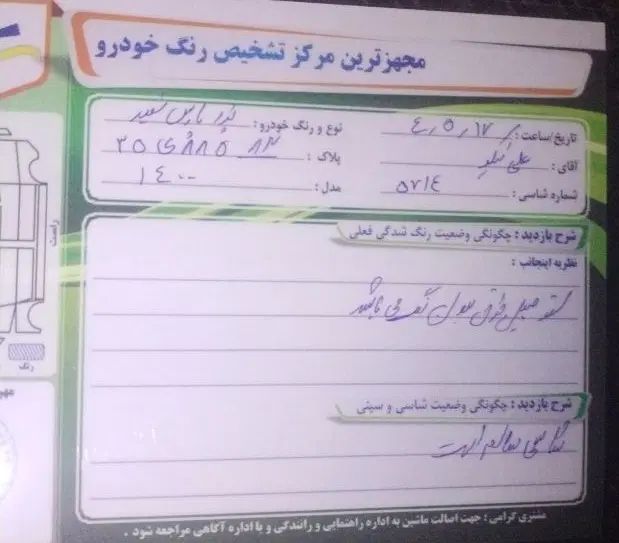 مجهزترین مرکز تشخیص رنگ خودرو
تاریخ/ساعت: ۴,۵,۱۷ نوع و رنگ خودرو: سفید
آقای: علی پلاک:
شماره شاسی: ۵۷۱۴ مدل: ۱۴۰۰
شرح بازدید: چگونگی وضعیت رنگ شدگی فعلی
نظریه اینجانب:
فوق بدون رنگ می باشد
شرح بازدید: چگونگی وضعیت شاسی و سینی
شاسی سالم است
مشتری گرامی: جهت اصالت ماشین به اداره راهنمایی و رانندگی و یا اداره آگاهی مراجعه شود.
راست
رنگ
مهر